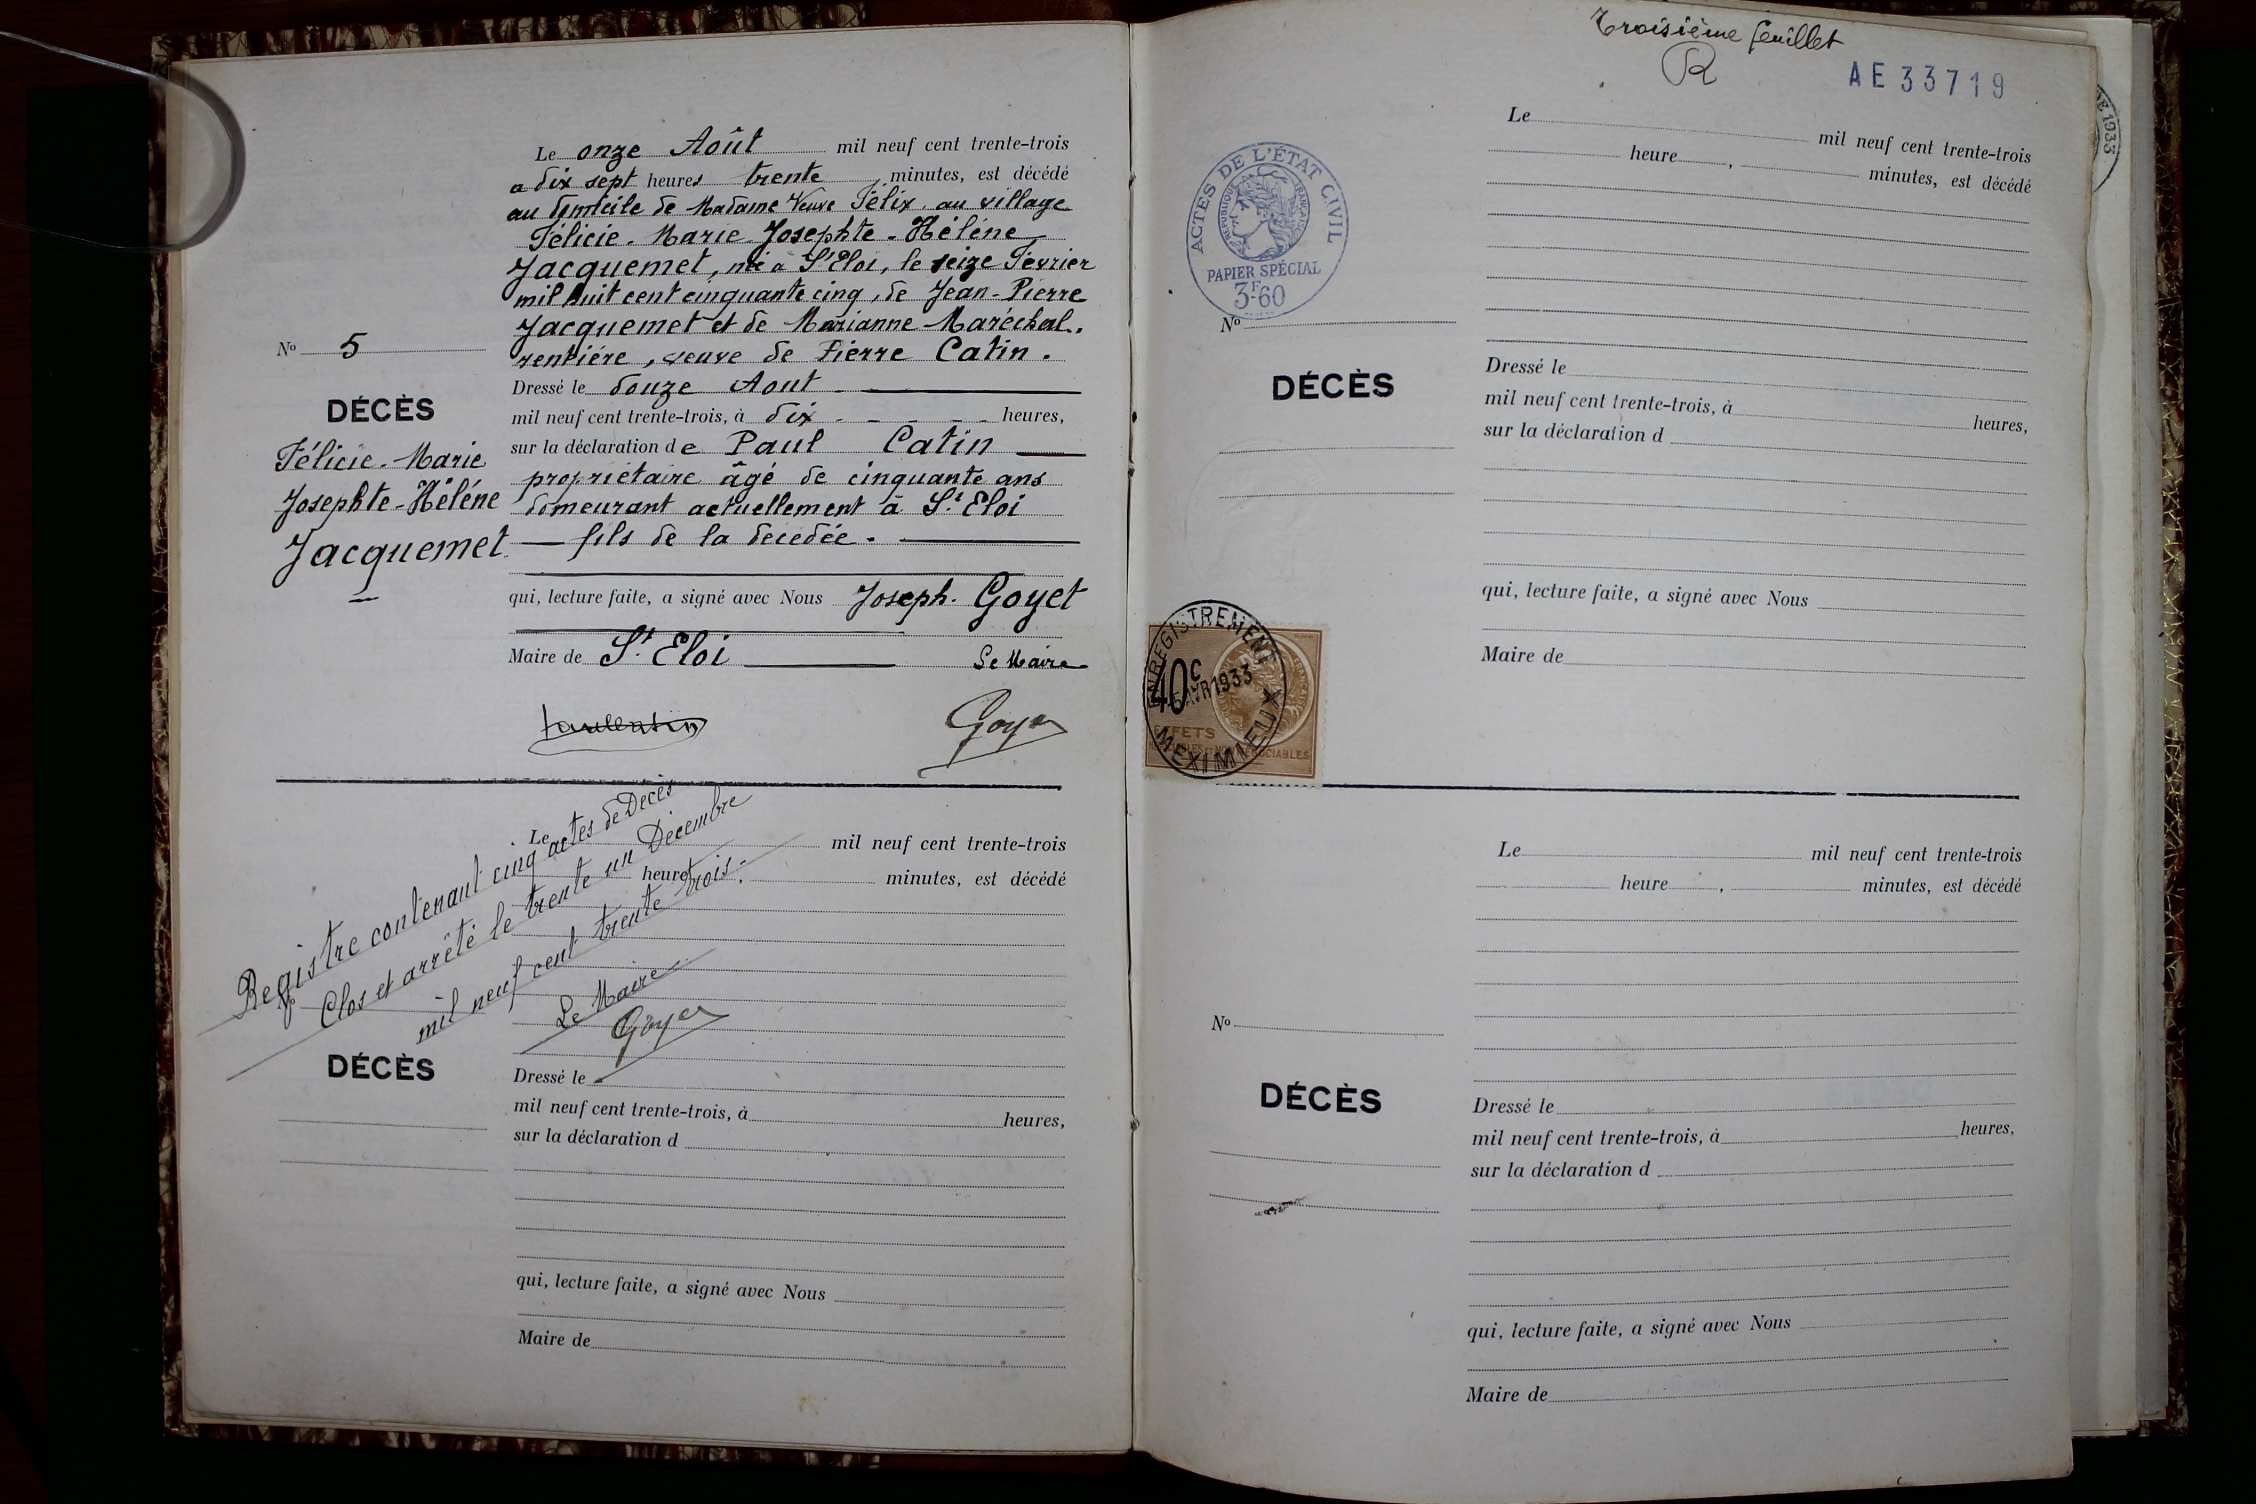 Le onze Août mil neuf cent trente-trois
a dix sept heures trente, minutes, est décédé
au domicile de Madame Veuve Félix au village
Félicie. Marie Josephte-Hélène
Jacquemet, né à St Eloi, le seize Fevrier
mil huit cent cinquante cinq, de Jean-Pierre
Jacquemet et de Marianne Maréchal.
rentière, veuve de Pierre Catin.
No 5
DÉCÈS
Félicie. Marie
Josephte-Hélène
Jacquemet
Dressé le douze Aout
mil neuf cent trente-trois, à dix heures,
sur la déclaration de Paul Catin
propriétaire âgé de cinquante ans
domeurant actuellement à St Eloi
fils de la decedée.
qui, lecture faite, a signé avec Nous Joseph. Goyet
Maire de St Eloi Le Maire
Goyet
Le mil neuf cent trente-trois
heure, minutes, est décédé
Registre contenant cinq actes de Decès
Clos et arrêté le trente un Décembre
mil neuf cent trente trois.
Le Maire
Goyet
No
DÉCÈS
Dressé le
mil neuf cent trente-trois, à heures,
sur la déclaration d
qui, lecture faite, a signé avec Nous
Maire de
Troisième feuillet
AE 33719
ACTES DE L'ÉTAT CIVIL
RÉPUBLIQUE FRANÇAISE
PAPIER SPÉCIAL
3F.60
Le mil neuf cent trente-trois
heure, minutes, est décédé
No
DÉCÈS
Dressé le
mil neuf cent trente-trois, à heures,
sur la déclaration d
qui, lecture faite, a signé avec Nous
Maire de
ENREGISTREMENT
40c
AVR 1933
MEXIMIEUX
Le mil neuf cent trente-trois
heure, minutes, est décédé
No
DÉCÈS
Dressé le
mil neuf cent trente-trois, à heures,
sur la déclaration d
qui, lecture faite, a signé avec Nous
Maire de
DE 1933